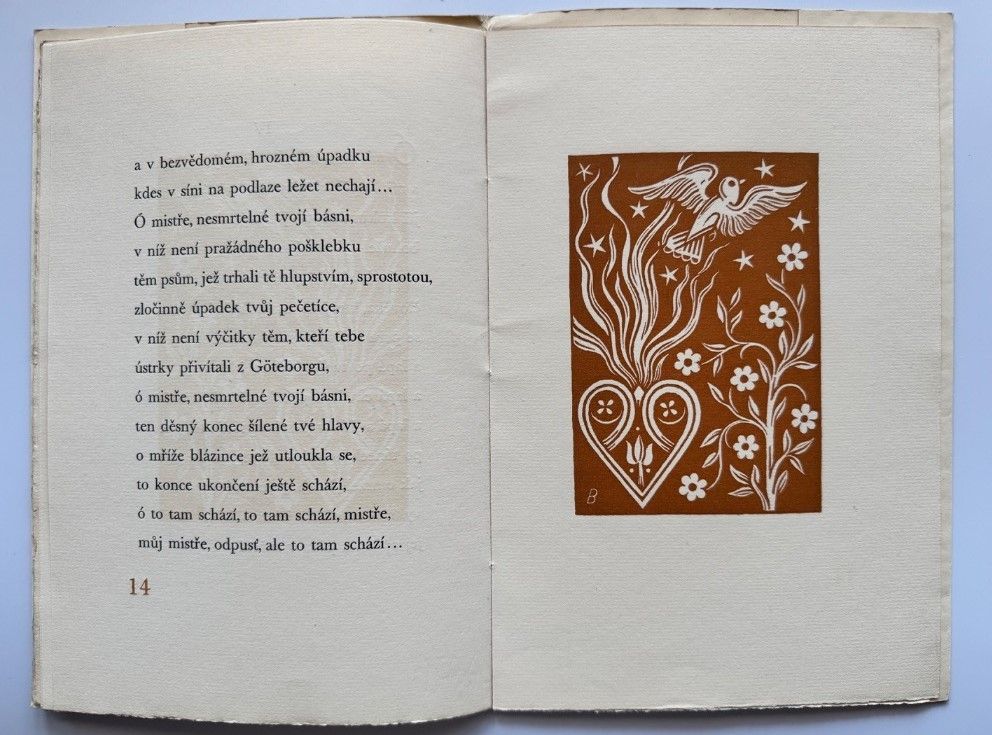 a v bezvědomém, hrozném úpadku
kdes v síni na podlaze ležet nechají...
Ó mistře, nesmrtelné tvojí básni,
v níž není pražádného pošklebku
těm psům, jež trhali tě hlupstvím, sprostotou,
zločinně úpadek tvůj pečetíce,
v níž není výčitky těm, kteří tebe
ústrky přivítali z Göteborgu,
ó mistře, nesmrtelné tvojí básni,
ten děsný konec šílené tvé hlavy,
o mříže blázince jež utloukla se,
to konce ukončení ještě schází,
ó to tam schází, to tam schází, mistře,
můj mistře, odpusť, ale to tam schází...
14
B